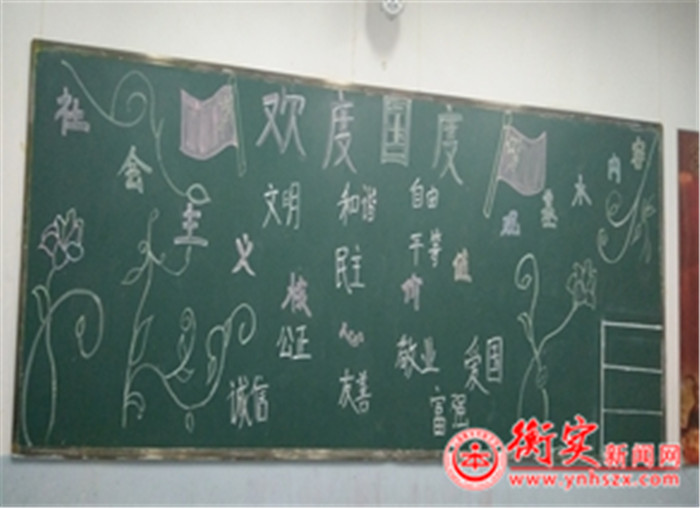 欢度国度
社会主义核心价值观基本内容
文明 和谐 自由
民主 平等
公正 敬业 爱国
诚信 友善 富强
衡实新闻网
www.ynhszx.com